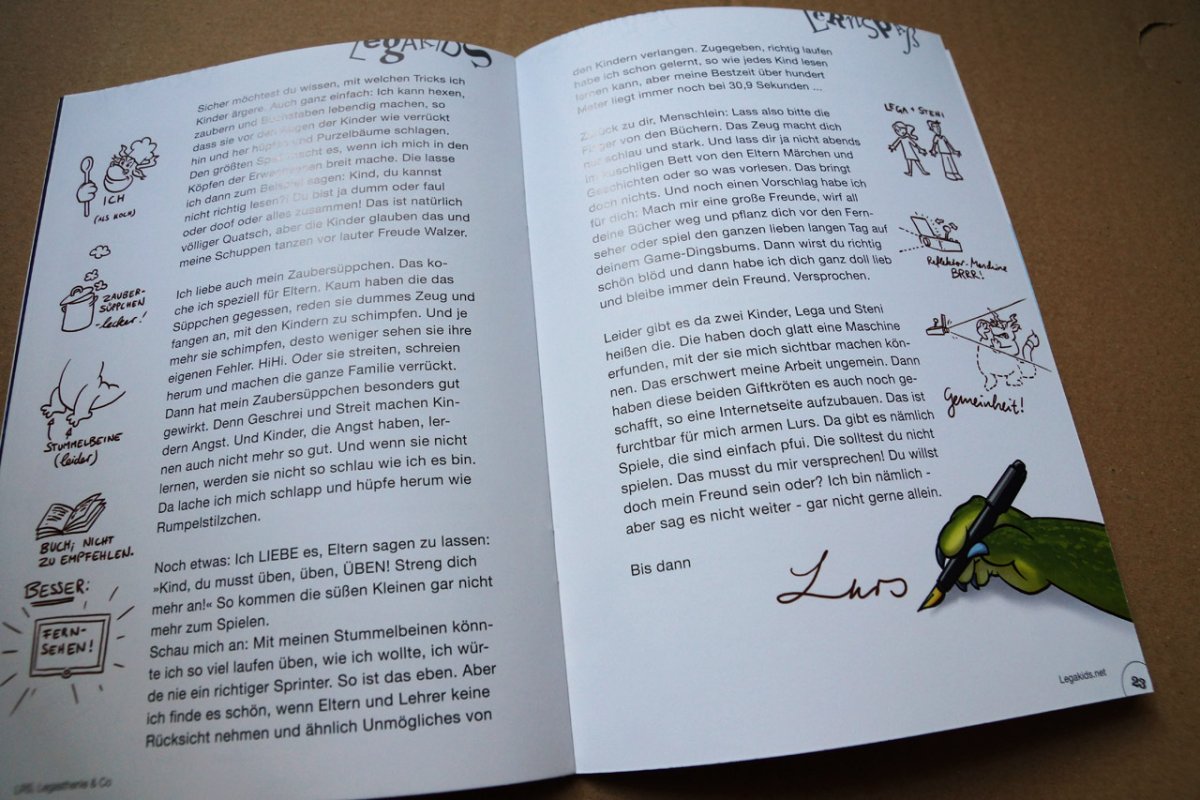 LegaKids
Sicher möchtest du wissen, mit welchen Tricks ich
Kinder ärgere. Auch ganz einfach: Ich kann hexen,
zaubern und Buchstaben lebendig machen, so
dass sie vor den Augen der Kinder wie verrückt
hin und her hüpfen und Purzelbäume schlagen.
Den größten Spaß macht es, wenn ich mich in den
Köpfen der Erwachsenen breit mache. Die lasse
ich dann zum Beispiel sagen: Kind, du kannst
nicht richtig lesen?! Du bist ja dumm oder faul
oder doof oder alles zusammen! Das ist natürlich
völliger Quatsch, aber die Kinder glauben das und
meine Schuppen tanzen vor lauter Freude Walzer.
Ich liebe auch mein Zaubersüppchen. Das ko-
che ich speziell für Eltern. Kaum haben die das
Süppchen gegessen, reden sie dummes Zeug und
fangen an, mit den Kindern zu schimpfen. Und je
mehr sie schimpfen, desto weniger sehen sie ihre
eigenen Fehler. HiHi. Oder sie streiten, schreien
herum und machen die ganze Familie verrückt.
Dann hat mein Zaubersüppchen besonders gut
gewirkt. Denn Geschrei und Streit machen Kin-
dern Angst. Und Kinder, die Angst haben, ler-
nen auch nicht mehr so gut. Und wenn sie nicht
lernen, werden sie nicht so schlau wie ich es bin.
Da lache ich mich schlapp und hüpfe herum wie
Rumpelstilzchen.
Noch etwas: Ich LIEBE es, Eltern sagen zu lassen:
»Kind, du musst üben, üben, ÜBEN! Streng dich
mehr an!« So kommen die süßen Kleinen gar nicht
mehr zum Spielen.
Schau mich an: Mit meinen Stummelbeinen könn-
te ich so viel laufen üben, wie ich wollte, ich wür-
de nie ein richtiger Sprinter. So ist das eben. Aber
ich finde es schön, wenn Eltern und Lehrer keine
Rücksicht nehmen und ähnlich Unmögliches von
ICH
(ALS KOCH)
ZAUBER-
SÜPPCHEN
-lecker!
STUMMELBEINE
(leider)
BUCH; NICHT
ZU EMPFEHLEN.
BESSER:
FERN-
SEHEN!
LRS, Legasthenie & Co
LeRNSPaß
den Kindern verlangen. Zugegeben, richtig laufen
habe ich schon gelernt, so wie jedes Kind lesen
lernen kann, aber meine Bestzeit über hundert
Meter liegt immer noch bei 30,9 Sekunden ...
Zurück zu dir, Menschlein: Lass also bitte die
Finger von den Büchern. Das Zeug macht dich
nur schlau und stark. Und lass dir ja nicht abends
im kuschligen Bett von den Eltern Märchen und
Geschichten oder so was vorlesen. Das bringt
doch nichts. Und noch einen Vorschlag habe ich
für dich: Mach mir eine große Freunde, wirf all
deine Bücher weg und pflanz dich vor den Fern-
seher oder spiel den ganzen lieben langen Tag auf
deinem Game-Dingsbums. Dann wirst du richtig
schön blöd und dann habe ich dich ganz doll lieb
und bleibe immer dein Freund. Versprochen.
Leider gibt es da zwei Kinder, Lega und Steni
heißen die. Die haben doch glatt eine Maschine
erfunden, mit der sie mich sichtbar machen kön-
nen. Das erschwert meine Arbeit ungemein. Dann
haben diese beiden Giftkröten es auch noch ge-
schafft, so eine Internetseite aufzubauen. Das ist
furchtbar für mich armen Lurs. Da gibt es nämlich
Spiele, die sind einfach pfui. Die solltest du nicht
spielen. Das musst du mir versprechen! Du willst
doch mein Freund sein oder? Ich bin nämlich -
aber sag es nicht weiter - gar nicht gerne allein.
Bis dann
Lurs
LEGA + STENI
Reflektor-Maschine
BRRR!
Gemeinheit!
Legakids.net
23